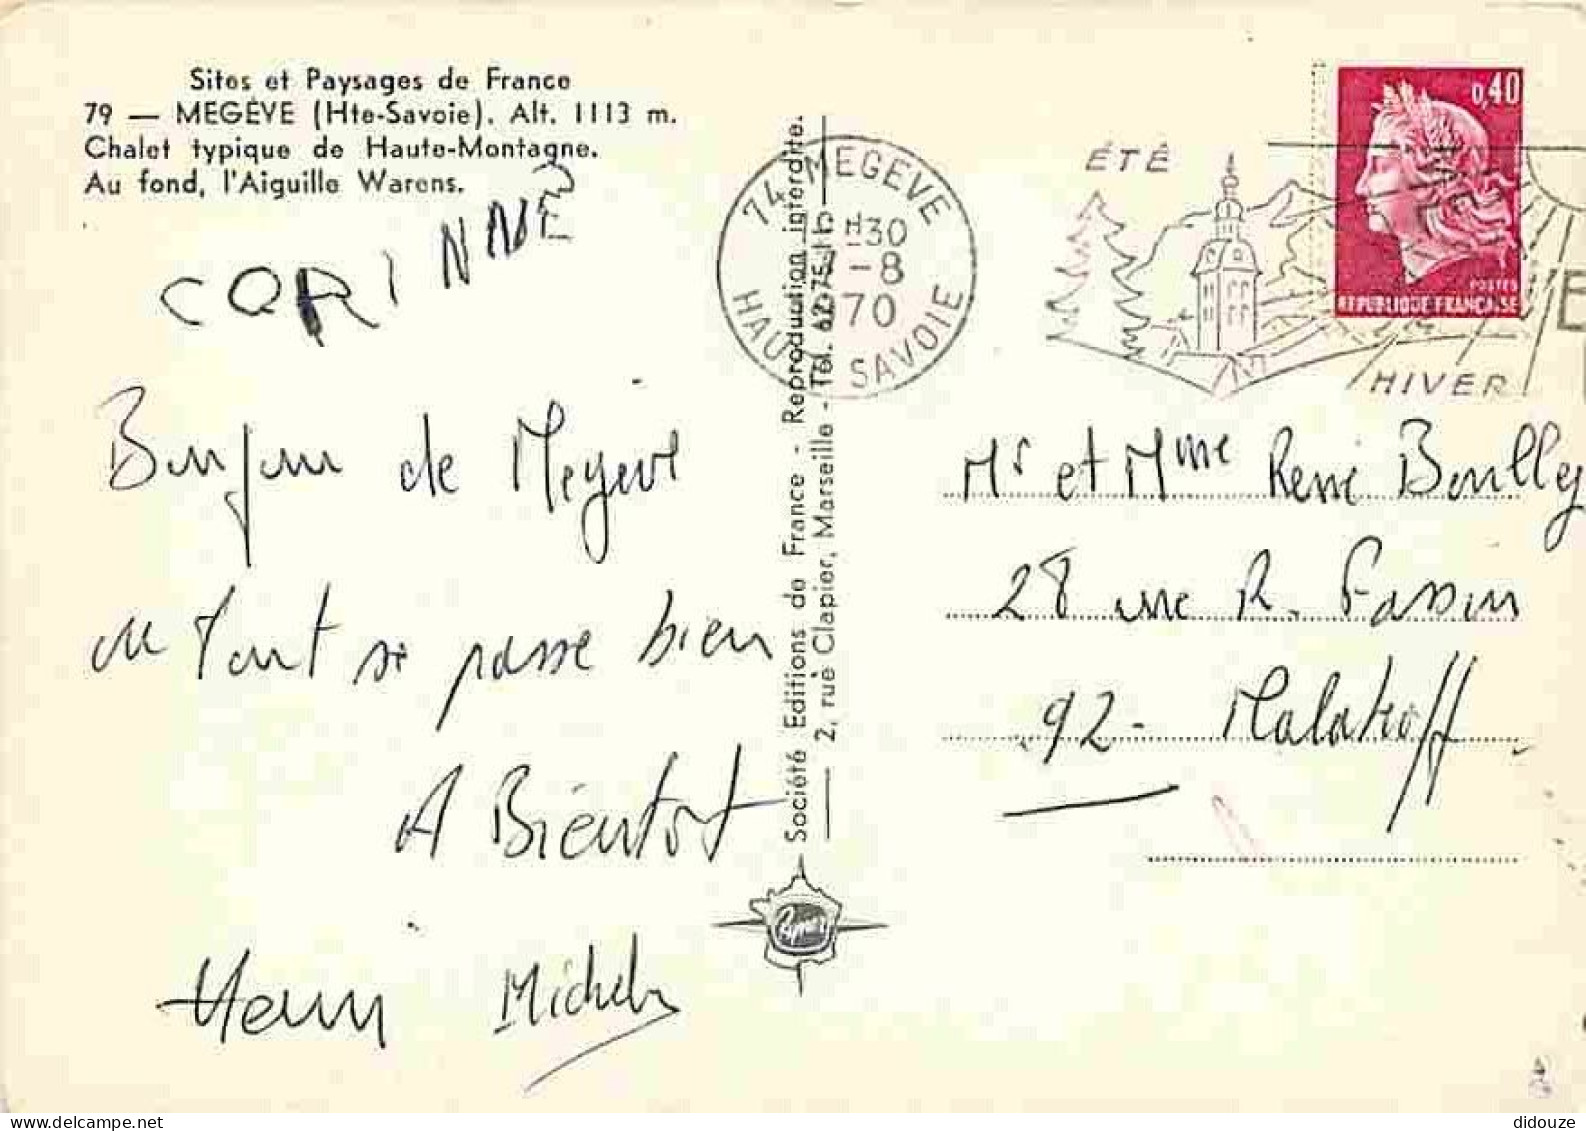 Sites et Paysages de France
79 — MEGÈVE (Hte-Savoie). Alt. 1113 m.
Chalet typique de Haute-Montagne.
Au fond, l'Aiguille Warens.
CORINNE
Bonjour de Megève
où tout se passe bien
A Bientôt
Henri Michele
Société Editions de France - Reproduction interdite.
2, rue Clapier, Marseille - Tél. 62-75-15
74 MEGEVE
H30
-8
70
HAUTE SAVOIE
ÉTÉ
HIVER
0,40
POSTES
REPUBLIQUE FRANÇAISE
Mr et Mme René Boulley
28 rue R. Fassin
92 - Malakoff
didouze